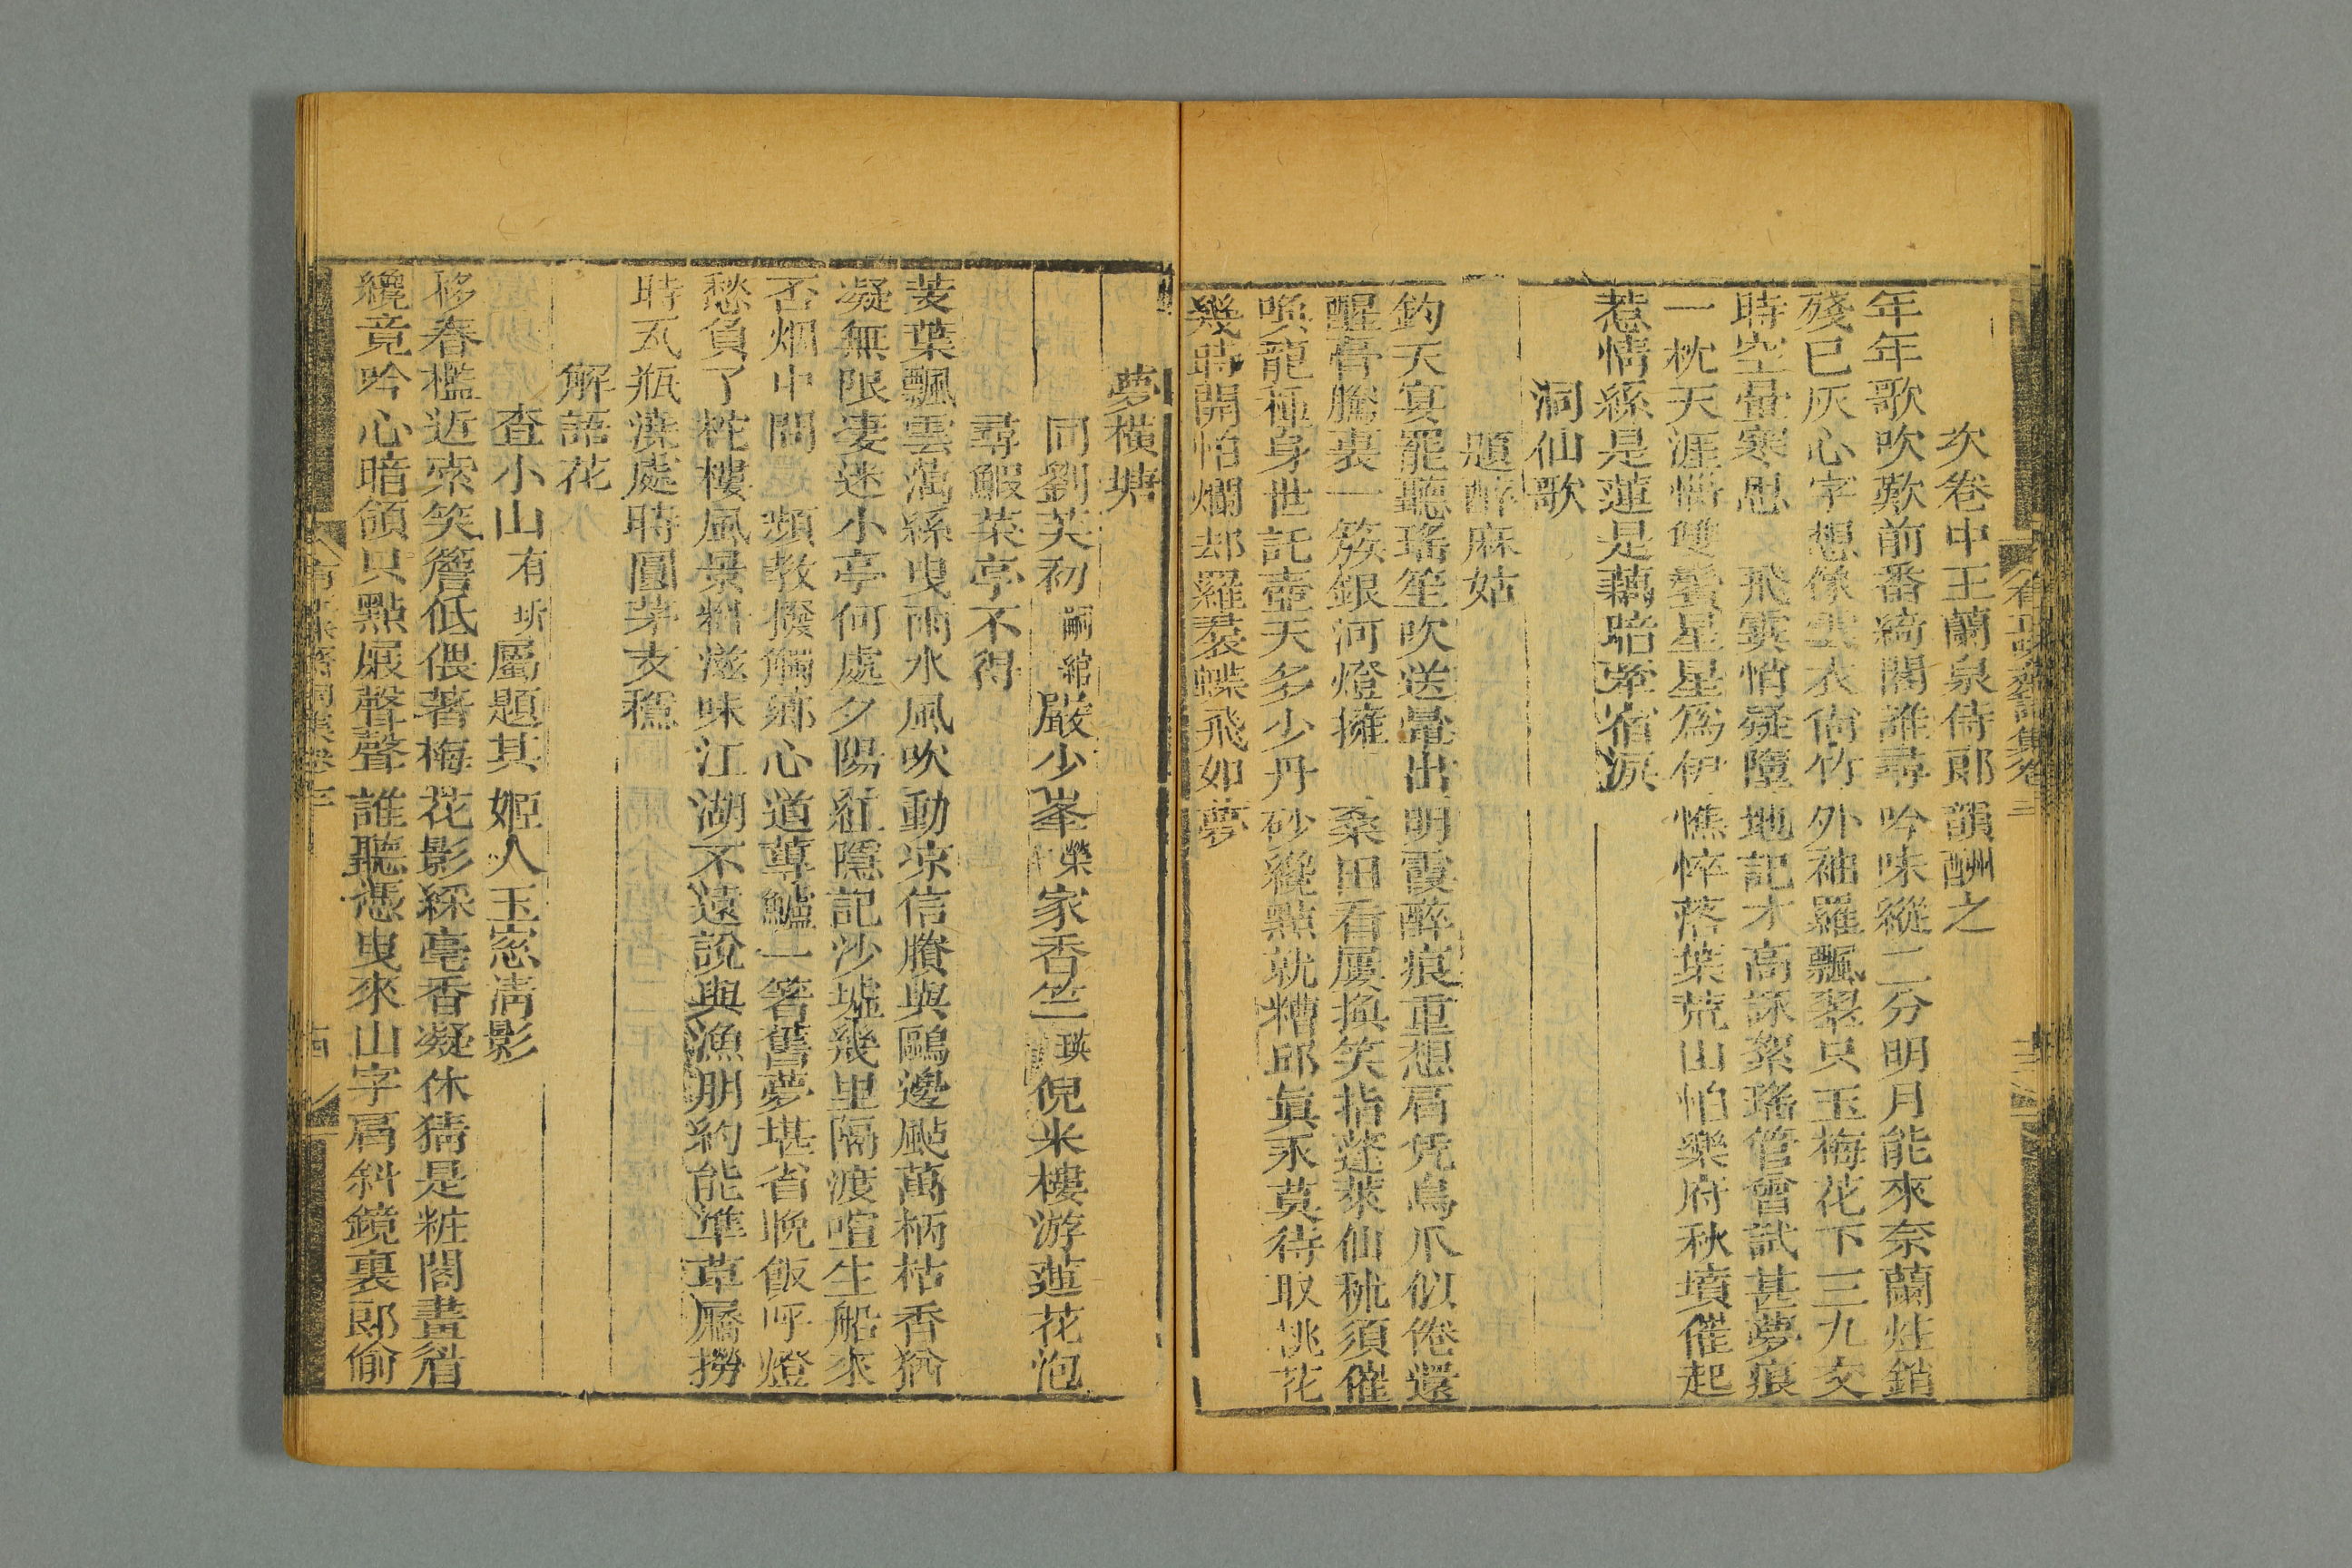 次卷中王蘭泉侍郎韻酬之
年年歌吹歎前番綺閣誰尋吟味縱二分明月能來奈蘭炷銷
殘已灰心字想像雲衣倚竹外袖羅飄翠只玉梅花下三九交
時空暈寒思 飛霙悄疑墮地記才高詠絮瑤管曾試甚夢痕
一枕天涯悟雙鬢星星為伊憔悴落葉荒山怕樂府秋墳催起
惹情絲是蓮是藕暗牽宿淚
洞仙歌
題醉麻姑
鈞天宴罷聽瑤笙吹送暈出明霞醉痕重想肩凭鳥爪似倦還
醒瞢騰裹一簇銀河燈擁 桑田看屢換笑指蓬萊仙秫須催
喚龍種身世託壺天多少丹砂纔點就糟邱真汞莫待取桃花
幾時開怕爛却羅裙蝶飛如夢
夢橫塘
同劉芙初嗣綰嚴少峯榮家香竺瑛倪米樓游蓮花泡
尋鰕菜亭不得
芰葉飄雲蕅絲曳雨水風吹動凉信賸與鷗邊颭萬柄枯香猶
凝無限淒迷小亭何處夕陽紅隱記沙墟幾里隔渡喧生船來
否烟中問 頻教撥觸鄉心道蓴鱸一箸舊夢堪省晚飯呼燈
愁負了柁樓風景料滋味江湖不遠說與漁朋約能準草屩撈
時瓦瓶漉處時圓茅支穩
解語花
查小山有圻屬題其姬人玉窓清影
移春檻近索笑簷低偎著梅花影綵毫香凝休猜是粧閣畫眉
纔竟吟心暗領只點屐聲聲誰聽憑曳來山字屑斜鏡裏郎偷